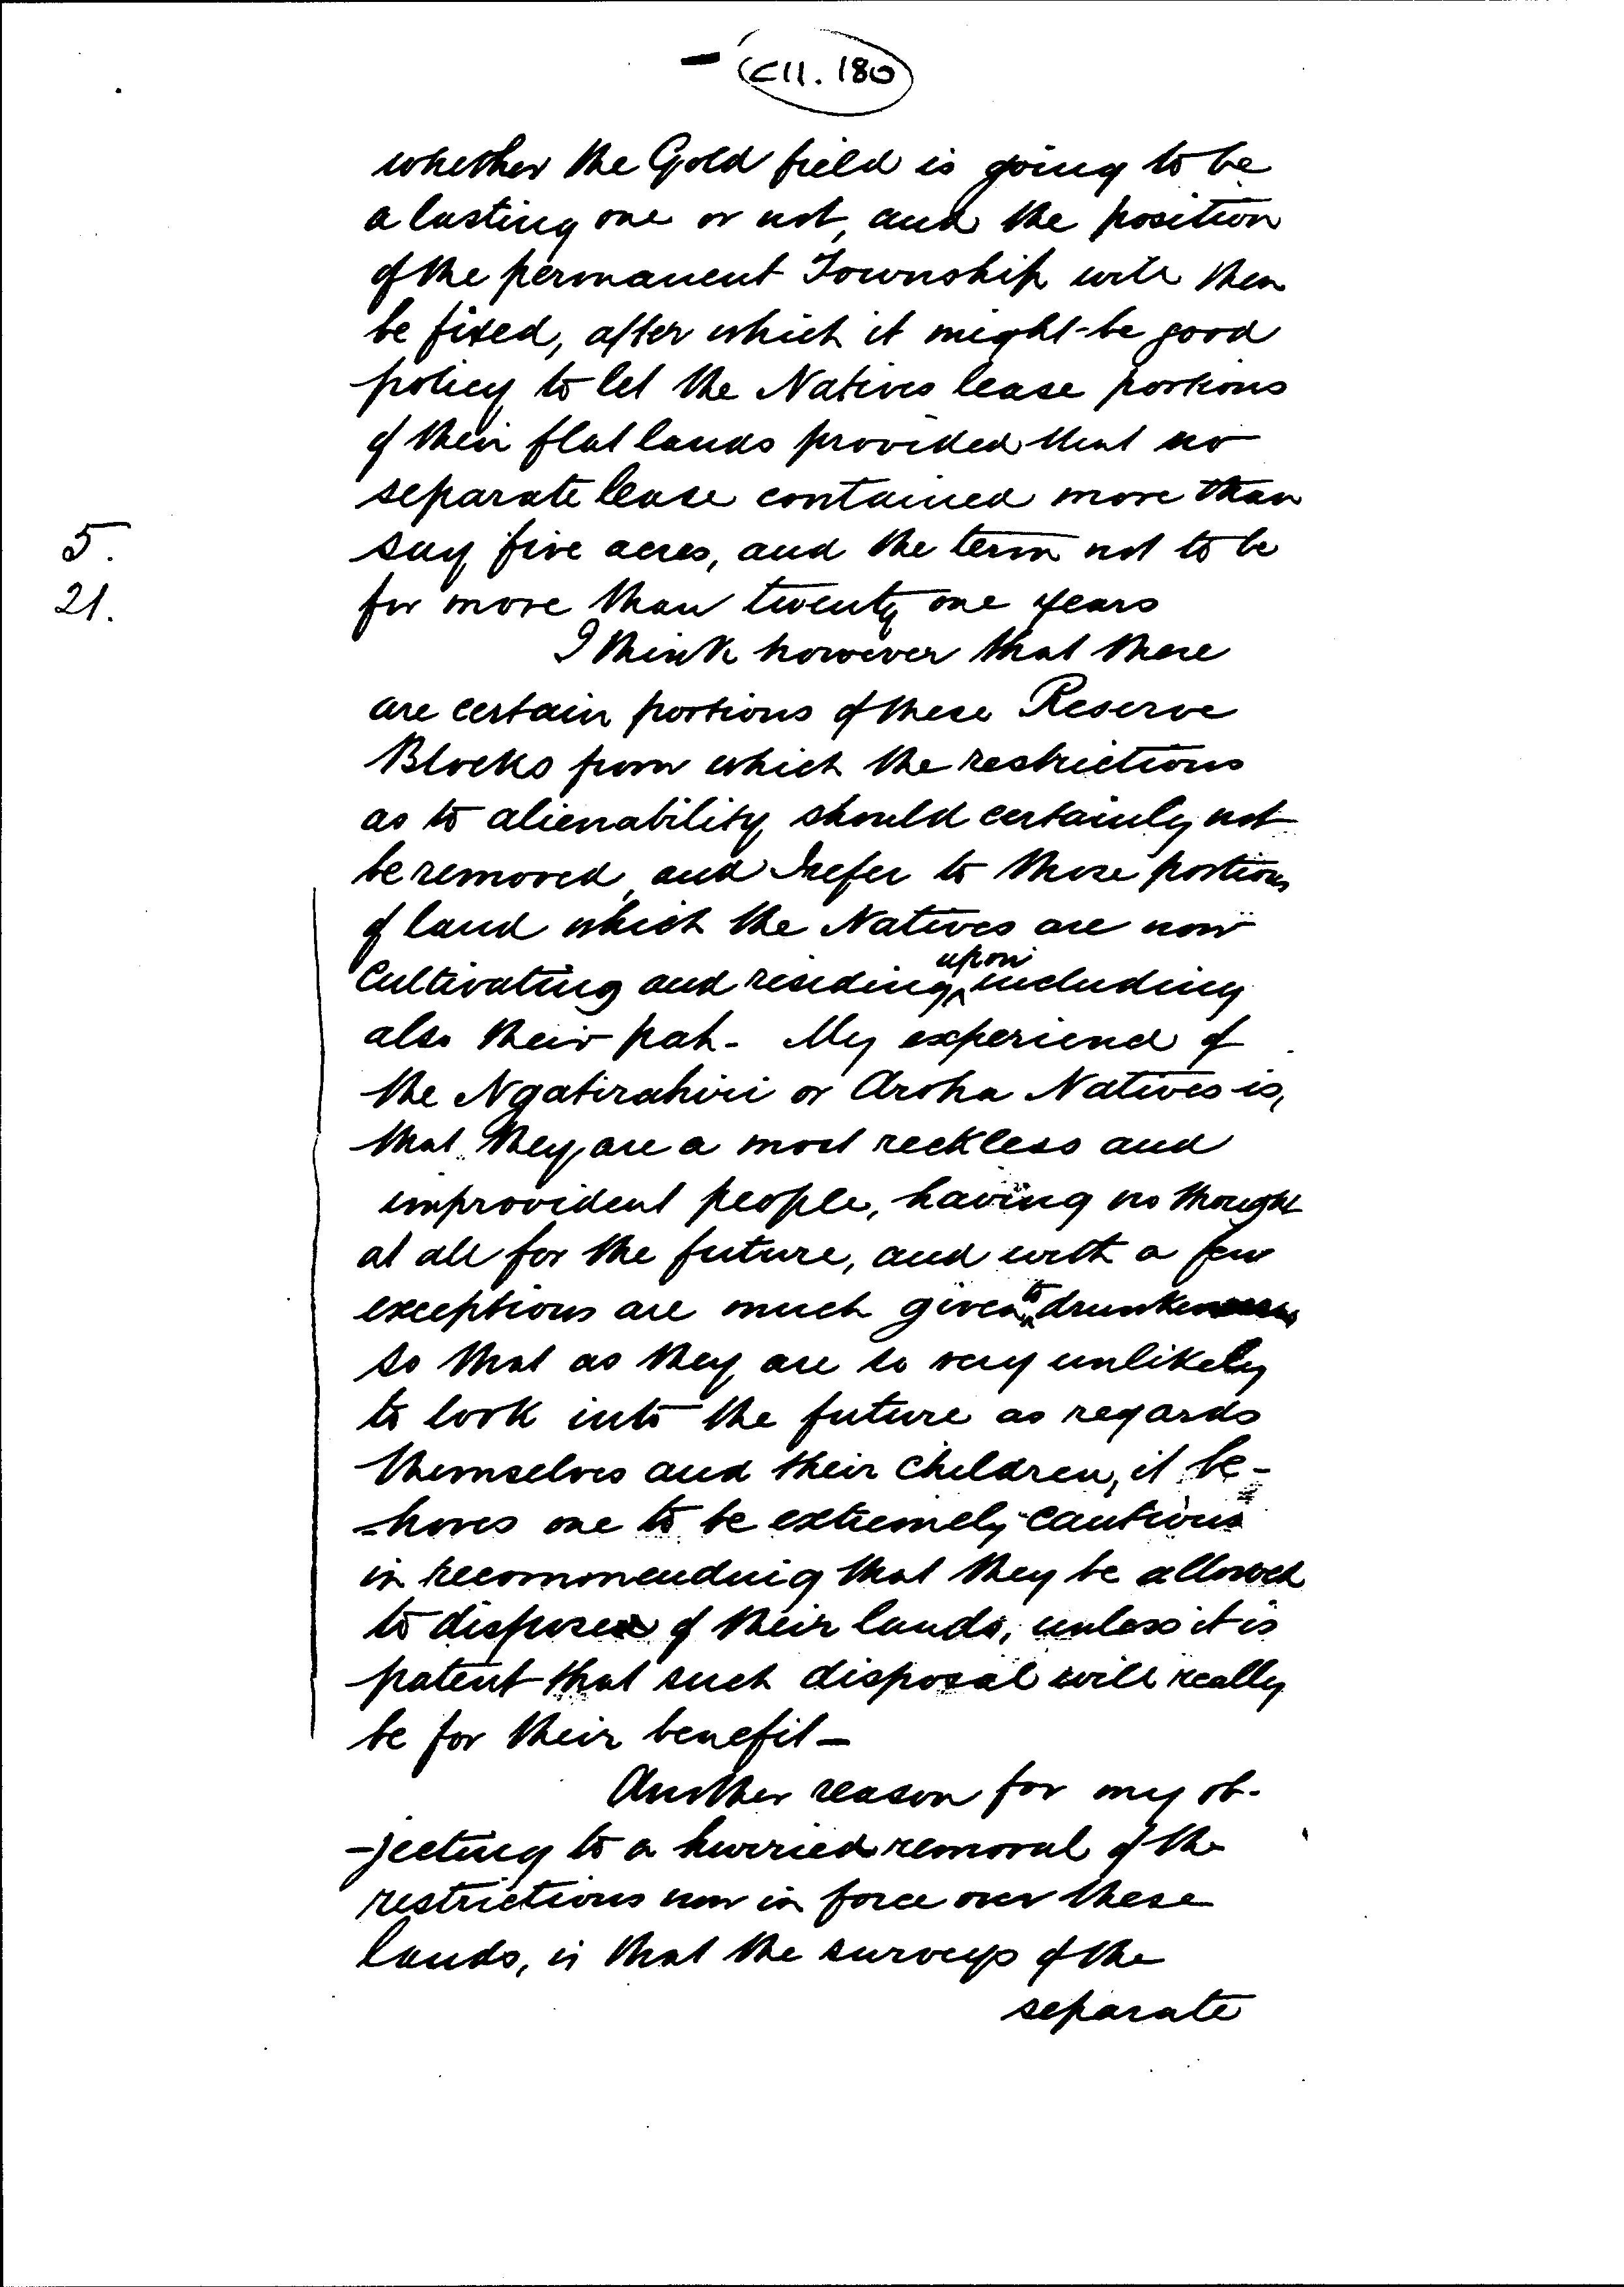 C11.180
whether the Gold field is going to be
a lasting one or not, and the position
of the permanent Township will then
be fixed, after which it might be good
policy to let the Natives lease portions
of their flat lands provided that no
separate lease contained more than
5.
say five acres, and the term not to be
21.
for more than twenty one years
I think however that there
are certain portions of these Reserve
Blocks from which the restrictions
as to alienability should certainly not
be removed, and I refer to those portions
of land which the Natives are now
Cultivating and residing upon including
also their pah - My experience of
the Ngatirahiri or Aroha Natives is,
that they are a most reckless and
improvident people, having no thought
at all for the future, and with a few
exceptions are much given to drunkenness
so that as they are so very unlikely
to look into the future as regards
themselves and their children, it be-
-hoves one to be extremely cautious
in recommending that they be allowed
to dispose of their lands, unless it is
patent that such disposal will really
be for their benefit -
Another reason for my ob-
-jecting to a hurried removal of the
restrictions now in force over these
lands, is that the surveys of the
separate